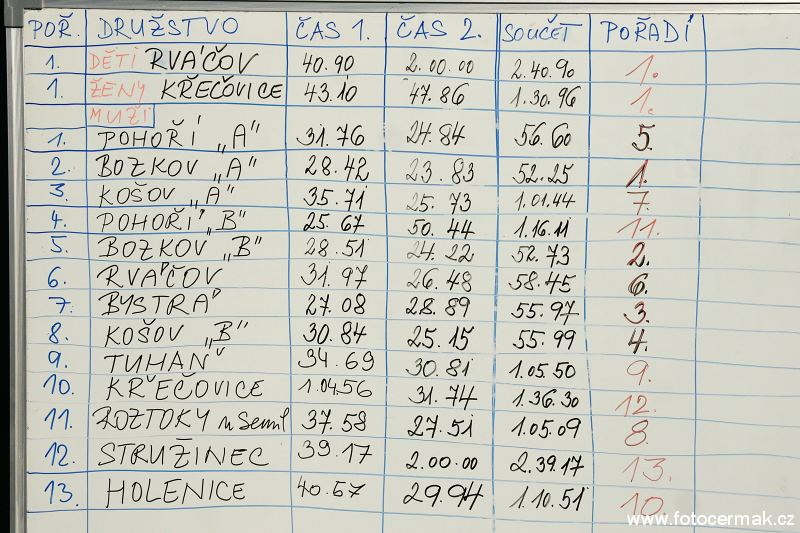 POŘ. DRUŽSTVO ČAS 1. ČAS 2. SOUČET POŘADÍ
1. DĚTI RVÁČOV 40.90 2.00.00 2.40.90 1.
1. ŽENY KŘEČOVICE 43.10 47.86 1.30.96 1.
MUŽI
1. POHOŘÍ „A" 31.76 24.84 56.60 5.
2. BOZKOV „A" 28.42 23.83 52.25 1.
3. KOŠOV „A" 35.71 25.73 1.01.44 7.
4. POHOŘÍ „B" 25.67 50.44 1.16.11 11.
5. BOZKOV „B" 28.51 24.22 52.73 2.
6. RVÁČOV 31.97 26.48 58.45 6.
7. BYSTRÁ 27.08 28.89 55.97 3.
8. KOŠOV „B" 30.84 25.15 55.99 4.
9. TUHAŇ 34.69 30.81 1.05.50 9.
10. KŘEČOVICE 1.04.56 31.74 1.36.30 12.
11. ROZTOKY u Semil 37.58 27.51 1.05.09 8.
12. STRUŽINEC 39.17 2.00.00 2.39.17 13.
13. HOLENICE 40.57 29.94 1.10.51 10.
www.fotocermak.cz